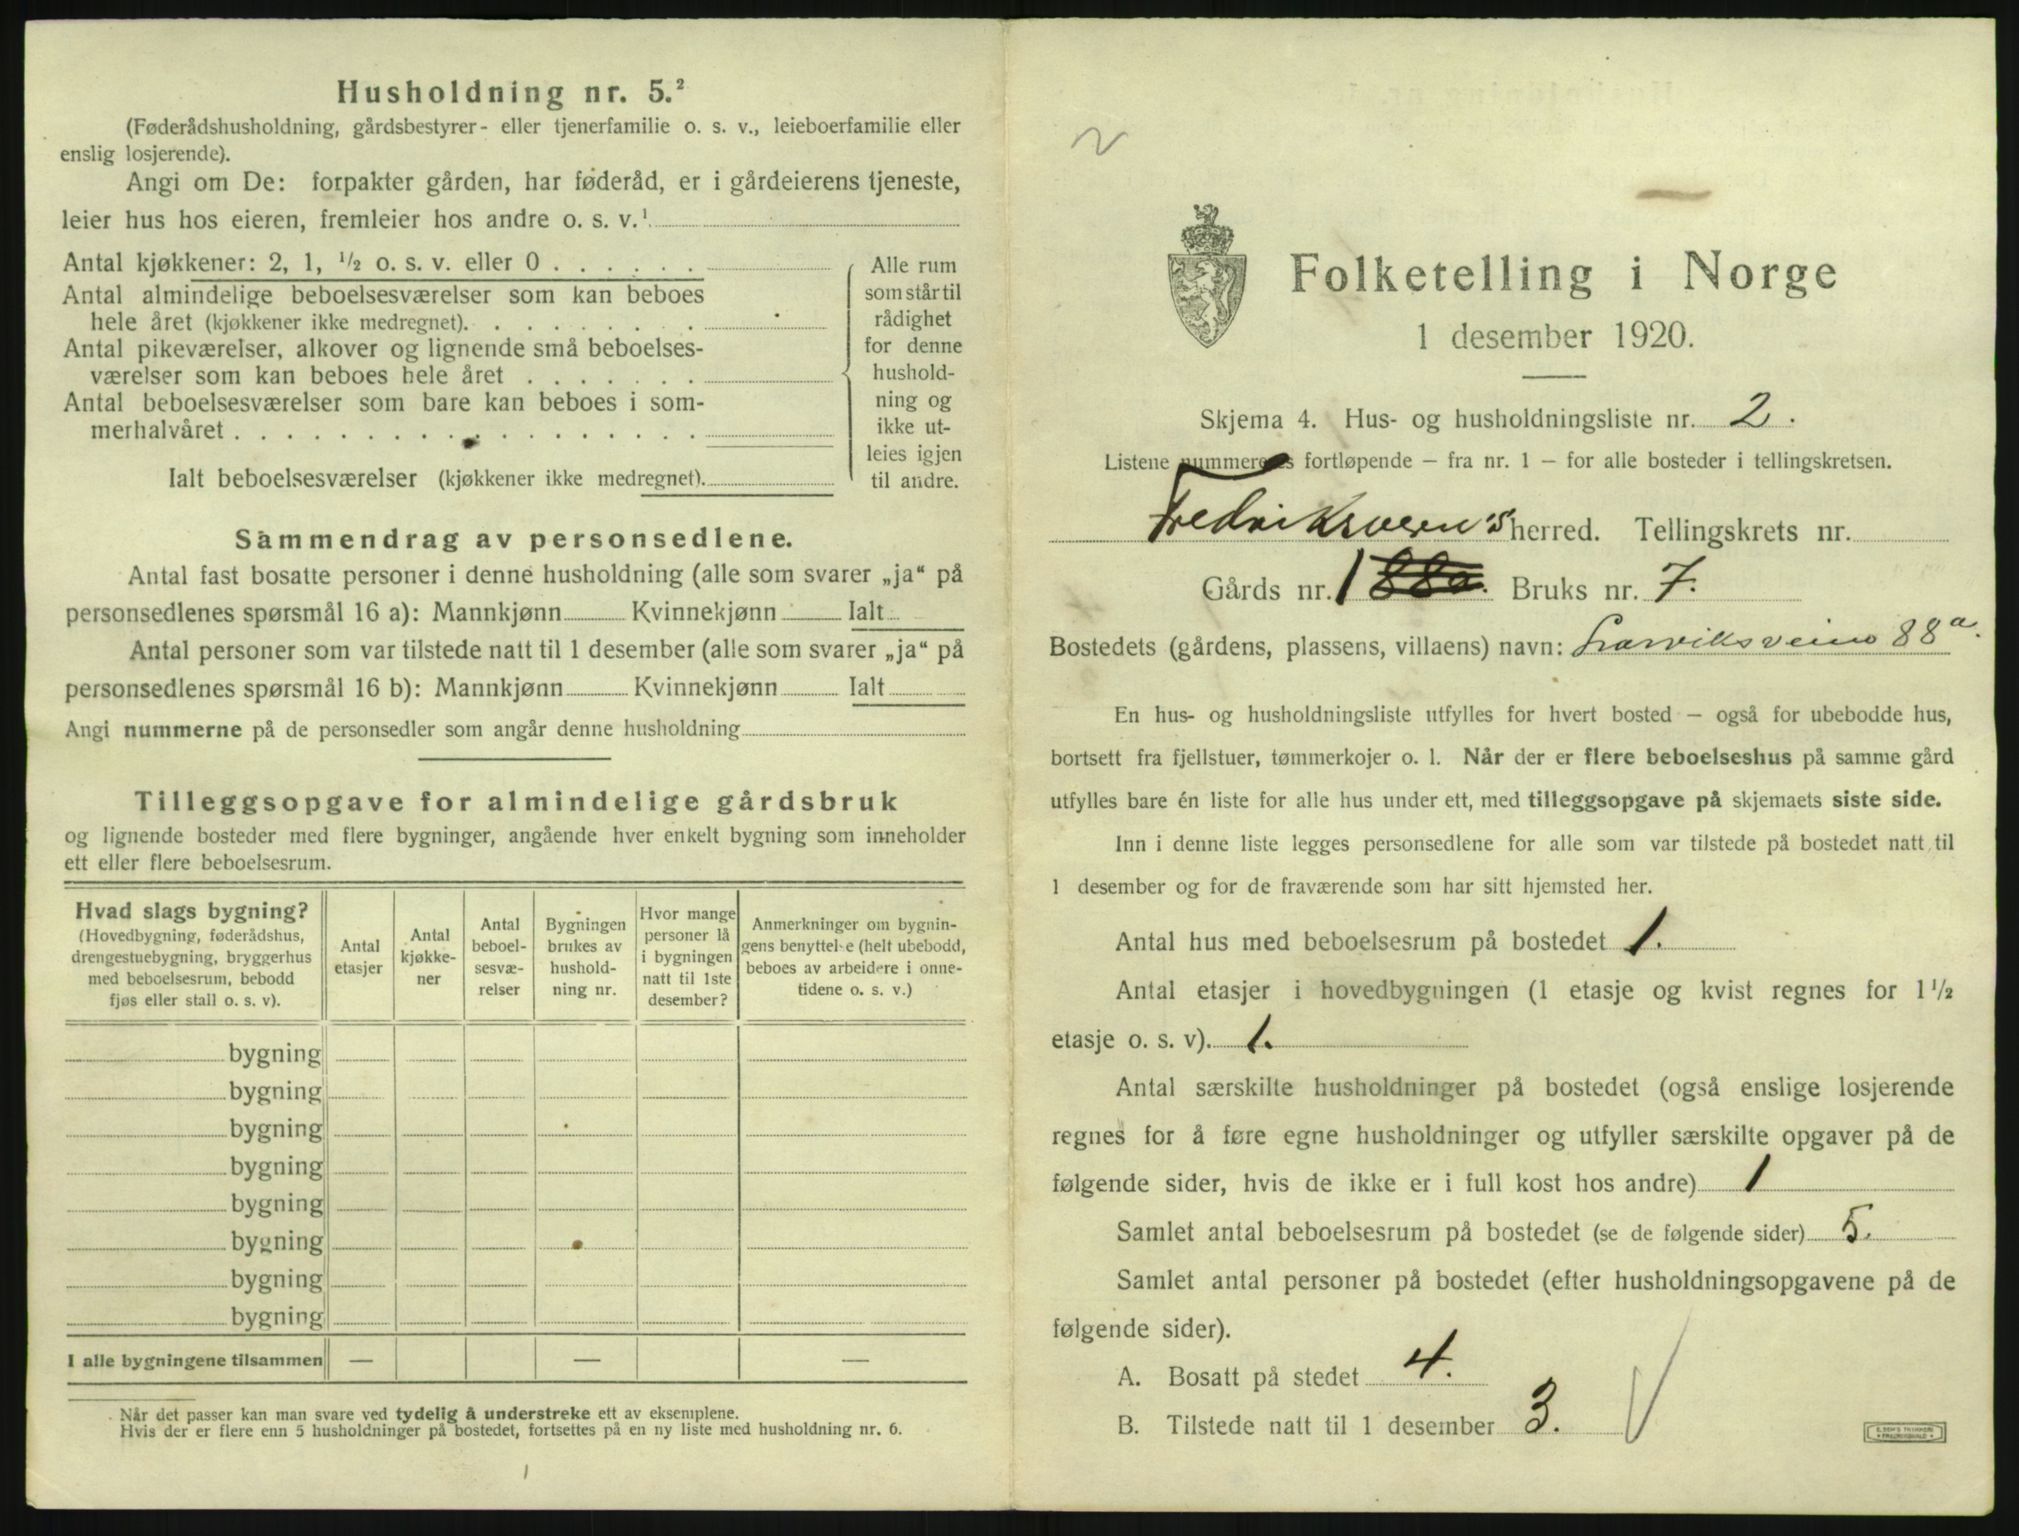 Husholdning nr. 5.²
(Føderådshusholdning, gårdsbestyrer- eller tjenerfamilie o. s. v., leieboerfamilie eller
enslig losjerende).
Angi om De: forpakter gården, har føderåd, er i gårdeierens tjeneste,
leier hus hos eieren, fremleier hos andre o. s. v.¹
Antal kjøkkener: 2, 1, ¹/₂ o. s. v. eller 0 . . . . . .
Antal almindelige beboelsesværelser som kan beboes
hele året (kjøkkener ikke medregnet). . . . . . . . .
Antal pikeværelser, alkover og lignende små beboelses-
værelser som kan beboes hele året . . . . . . .
Antal beboelsesværelser som bare kan beboes i som-
merhalvåret . . . . . . . . . . . . . . . . . .
Ialt beboelsesværelser (kjøkkener ikke medregnet).
Alle rum
som står til
rådighet
for denne
hushold-
ning og
ikke ut-
leies igjen
til andre.
Sammendrag av personsedlene.
Antal fast bosatte personer i denne husholdning (alle som svarer „ja“ på
personsedlenes spørsmål 16 a): Mannkjønn Kvinnekjønn Ialt
Antal personer som var tilstede natt til 1 desember (alle som svarer „ja“ på
personsedlenes spørsmål 16 b): Mannkjønn Kvinnekjønn Ialt
Angi nummerne på de personsedler som angår denne husholdning
Tilleggsopgave for almindelige gårdsbruk
og lignende bosteder med flere bygninger, angående hver enkelt bygning som inneholder
ett eller flere beboelsesrum.
Hvad slags bygning?
(Hovedbygning, føderådshus,
drengestuebygning, bryggerhus
med beboelsesrum, bebodd
fjøs eller stall o. s. v).
Antal
etasjer
Antal
kjøkke-
ner
Antal
beboel-
sesvæ-
relser
Bygningen
brukes av
hushold-
ning nr.
Hvor mange
personer lå
i bygningen
natt til 1ste
desember?
Anmerkninger om bygnin-
gens benyttelse (helt ubebodd,
beboes av arbeidere i onne-
tidene o. s. v.)
bygning
bygning
bygning
bygning
bygning
bygning
bygning
bygning
I alle bygningene tilsammen — — —
Når det passer kan man svare ved tydelig å understreke ett av eksemplene.
Hvis der er flere enn 5 husholdninger på bostedet, fortsettes på en ny liste med husholdning nr. 6.
2
Folketelling i Norge
1 desember 1920.
Skjema 4. Hus- og husholdningsliste nr. 2.
Listene nummereres fortløpende — fra nr. 1 — for alle bosteder i tellingskretsen.
Fredriksvern's herred. Tellingskrets nr.
Gårds nr. 1 88a. Bruks nr. 7.
Bostedets (gårdens, plassens, villaens) navn: Larviksveien 88ª.
En hus- og husholdningsliste utfylles for hvert bosted — også for ubebodde hus,
bortsett fra fjellstuer, tømmerkojer o. l. Når der er flere beboelseshus på samme gård
utfylles bare én liste for alle hus under ett, med tilleggsopgave på skjemaets siste side.
Inn i denne liste legges personsedlene for alle som var tilstede på bostedet natt til
1 desember og for de fraværende som har sitt hjemsted her.
Antal hus med beboelsesrum på bostedet 1.
Antal etasjer i hovedbygningen (1 etasje og kvist regnes for 1 ¹/₂
etasje o. s. v). 1.
Antal særskilte husholdninger på bostedet (også enslige losjerende
regnes for å føre egne husholdninger og utfyller særskilte opgaver på de
følgende sider, hvis de ikke er i full kost hos andre) 1
Samlet antal beboelsesrum på bostedet (se de følgende sider) 5.
Samlet antal personer på bostedet (efter husholdningsopgavene på de
følgende sider).
A. Bosatt på stedet 4.
B. Tilstede natt til 1 desember 3.